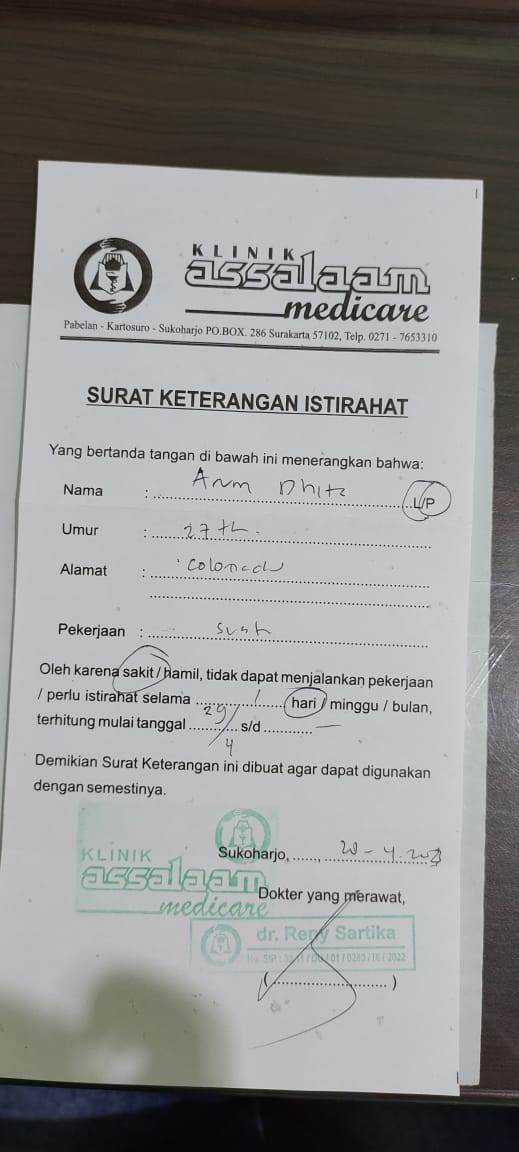 KLINIK
assalaam
medicare
Pabelan - Kartosuro - Sukoharjo PO.BOX. 286 Surakarta 57102, Telp. 0271 - 7653310
SURAT KETERANGAN ISTIRAHAT
Yang bertanda tangan di bawah ini menerangkan bahwa:
Nama : Arum L/P
Umur : 27 th.
Alamat :
Pekerjaan :
Oleh karena sakit / hamil, tidak dapat menjalankan pekerjaan
/ perlu istirahat selama 1 hari / minggu / bulan,
terhitung mulai tanggal 29/4 s/d —
Demikian Surat Keterangan ini dibuat agar dapat digunakan
dengan semestinya.
KLINIK
assalaam
medicare
Sukoharjo,
Dokter yang merawat,
dr. Reny Sartika
No. SIP :